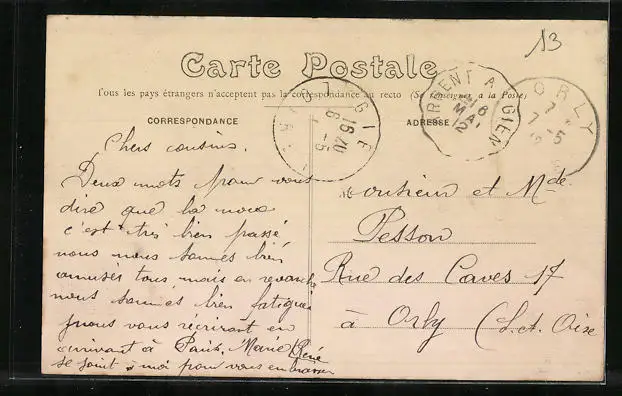 13
Carte Postale
Tous les pays étrangers n'acceptent pas la correspondance au recto (Se renseigner à la Poste)
CORRESPONDANCE
ADRESSE
GIEN
16 20
6 - 5
ARGENT A GIEN
6
MAI
12
ORLY
7 - 5
12
Chers cousins.
Deux mots pour vous
dire que la noce
c'est très bien passé
nous nous sommes bien
amuser tous, mais en revanche
nous sommes bien fatigués
nous vous récrirons en
arrivant à Paris. Marie René
se joint à moi pour vous embrasser
Monsieur et Mde
Pesson
Rue des Caves 17
à Orly (S. et Oise